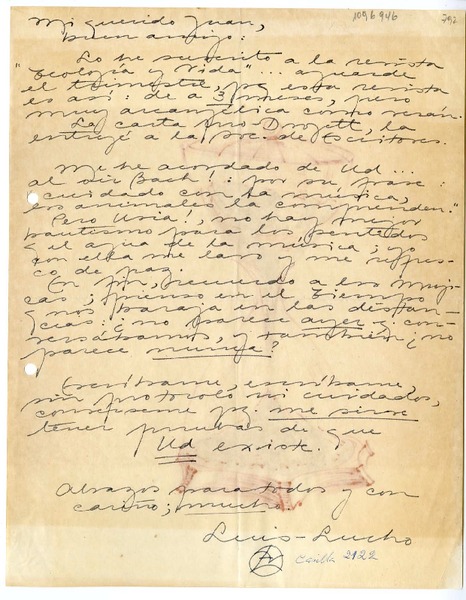 Mi querido Juan,
buen amigo:
1096946
792
Lo he suscrito a la revista
"Teología y Vida"... aguarde
el trimestre, pq esta revista
es así: de a 3 meses, pero
muy arcangélica como verán.
La carta pro Droguett, la
entregé a la Soc. de Escritores.
Me he acordado de Ud...
al oir Bach!: por su frase:
"cuidado con la música,
los animales la comprenden."
Pero Usía!, no hay mejor
bautismo para los sentidos
q el agua de la música; yo
con ella me lavo y me refres-
co de paz.
En fin, recuerdo a los
; pienso en el Tiempo
q nos baraja en las distan-
cias: ¿no parece ayer q con-
versábamos, y también ¿no
parece nunca?
Escríbame, escríbame,
sin protocolo ni cuidados,
converseme pq. me sirve
tener pruebas de que
Ud existe.
Abrazos para todos y con
cariño; mucho.
Luis-Lucho
Casilla 2122